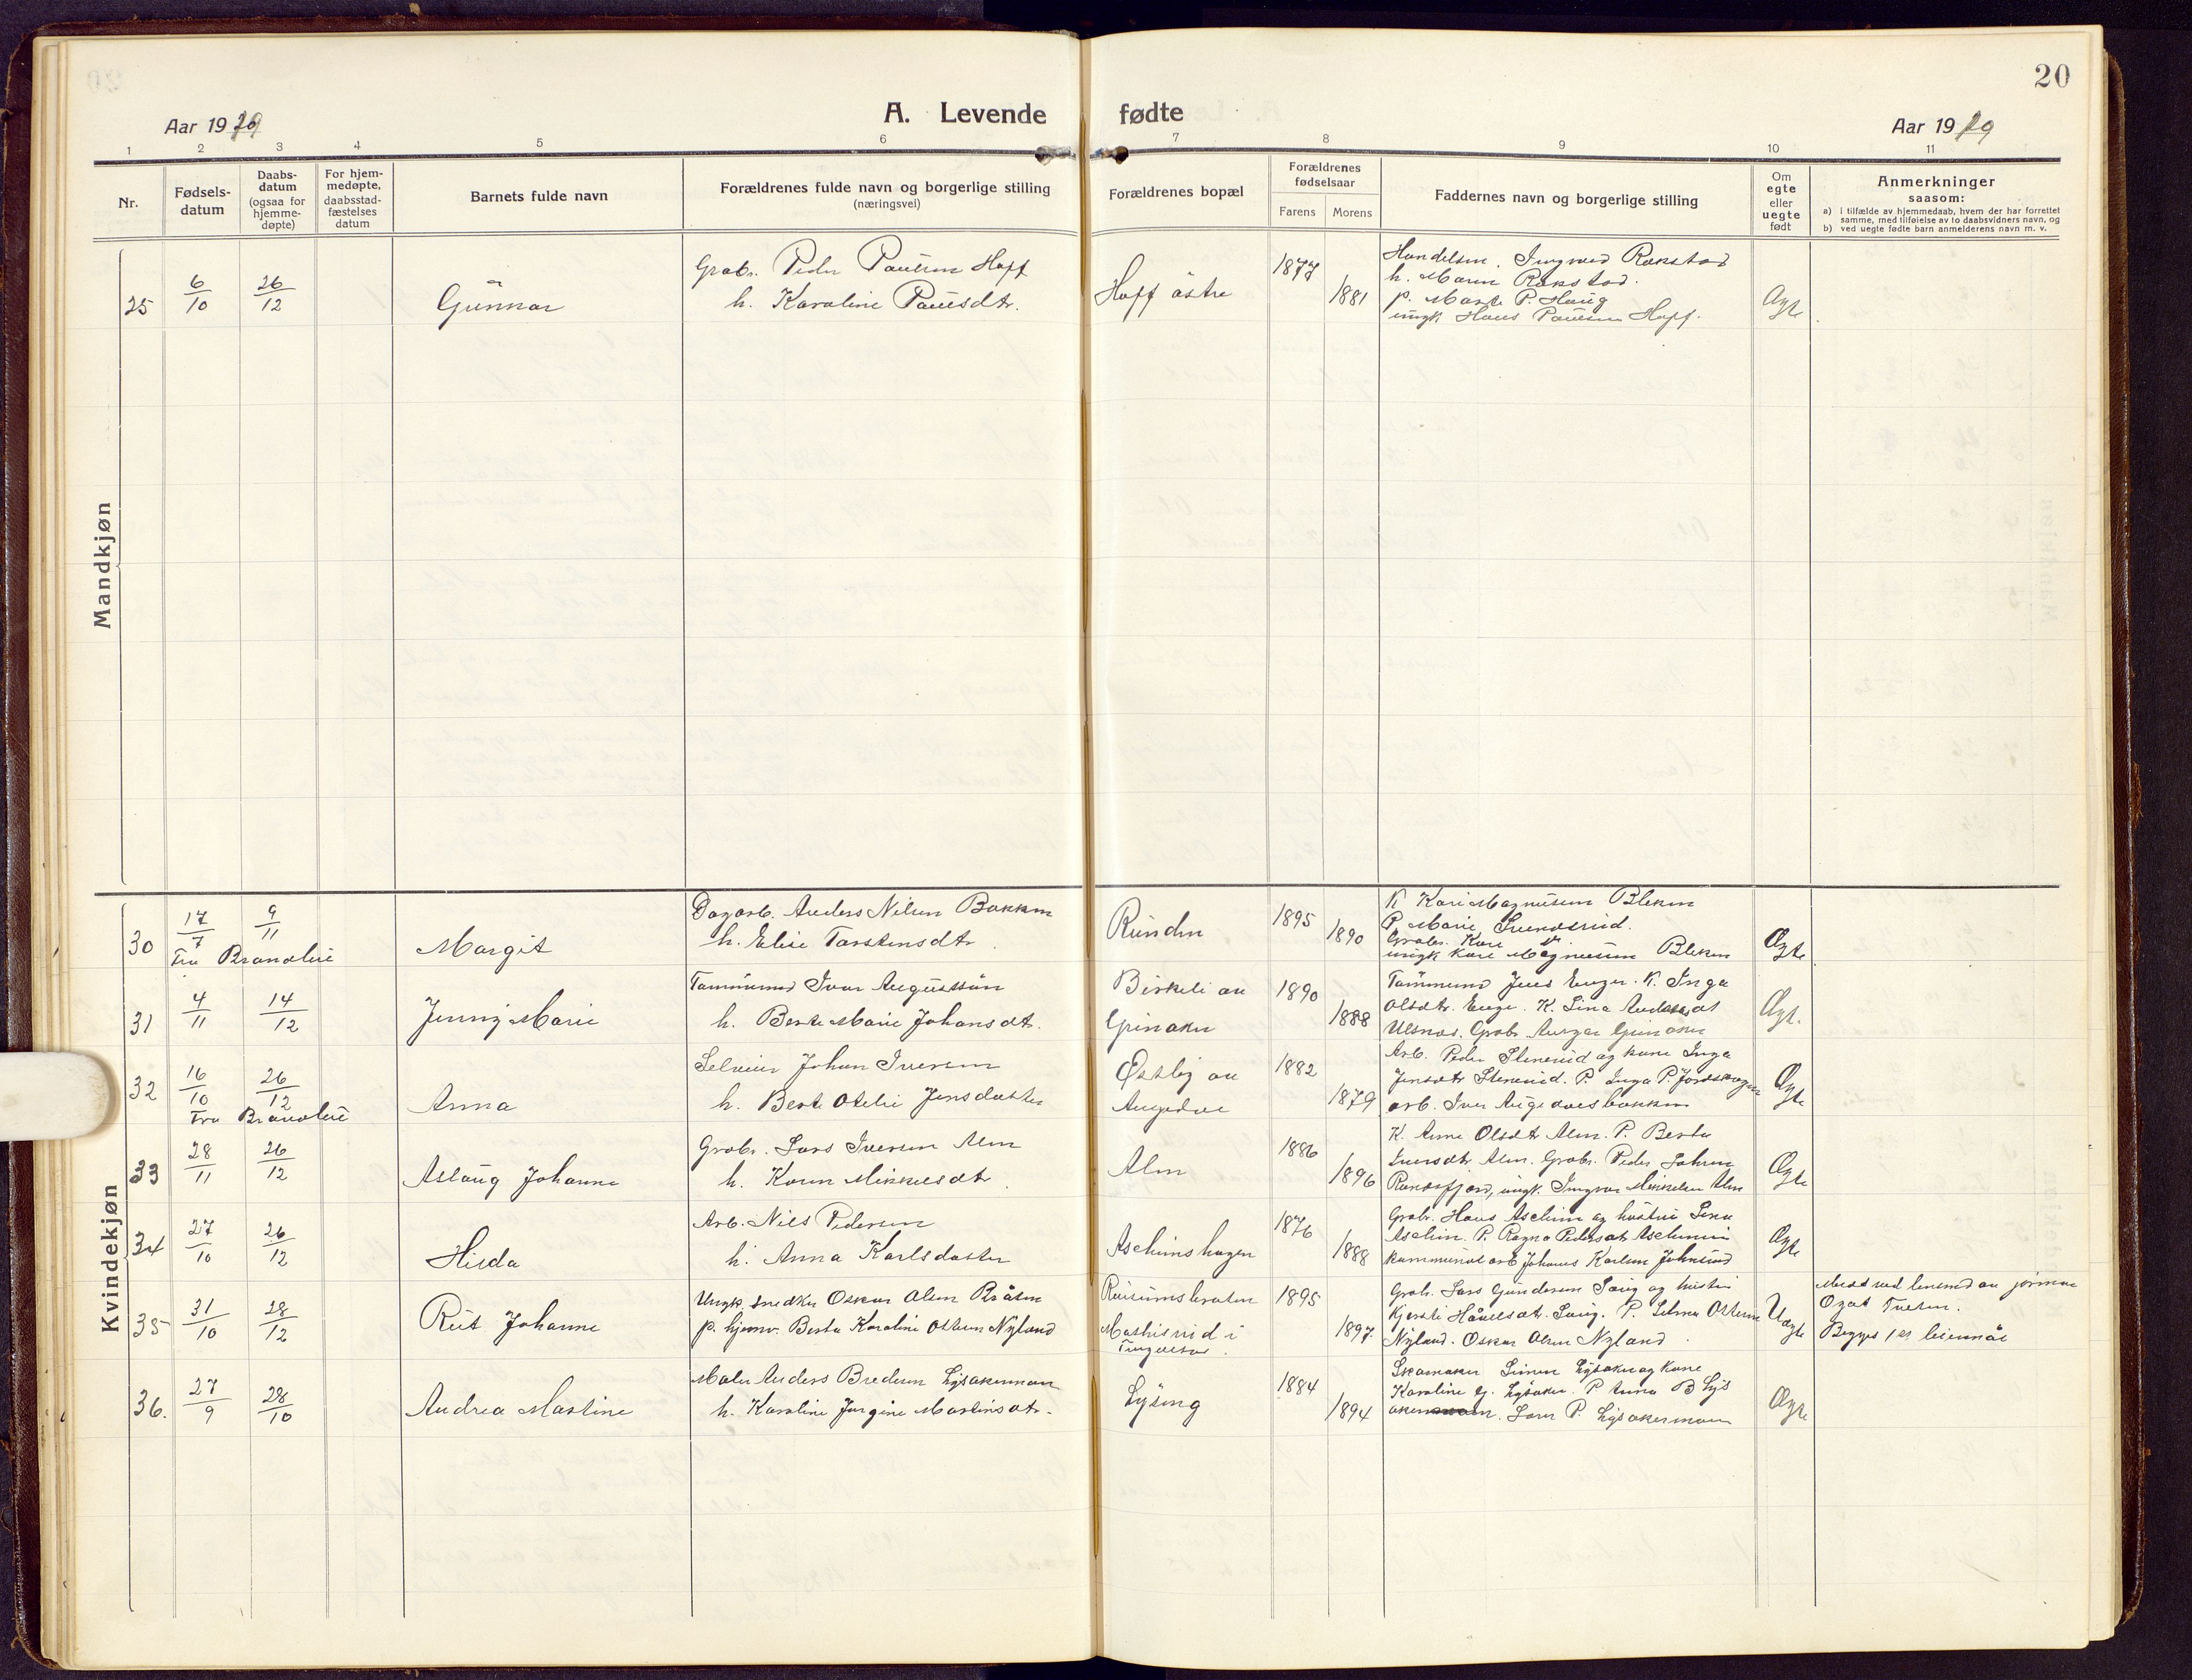 20
A. Levende fødte
Aar 1919
Aar 1919
1 2 3 4 5 6 7 8 9 10 11
Nr.
Fødsels-
datum
Daabs-
datum
(ogsaa for
hjemme-
døpte)
For hjem-
medøpte,
daabsstad-
fæstelses
datum
Barnets fulde navn
Forældrenes fulde navn og borgerlige stilling
(næringsvei)
Forældrenes bopæl
Forældrenes
fødselsaar
Farens Morens
Faddernes navn og borgerlige stilling
Om
egte
eller
uegte
født
Anmerkninger
saasom:
a) i tilfælde av hjemmedaab, hvem der har forrettet
samme, med tilføielse av to daabsvidners navn, og
b) ved uegte fødte barn anmelderens navn m. v.
Mandkjøn
25 6/10 26/12 Gunnar
Grabr. Peder Paulsen Hoff
h. Karoline Paulsdtr.
Hoff østre
1877 1881
Handelsm. Ingvald Rakstad
h. Maren Rakstad.
p. Marte P. Haug
ungk. Hans Paulsen Hoff.
Ægte
Kvindekjøn
30 17/7 9/11 Margit
Fra Brandbu
Dagarb. Anders Nilsen Bakken
h. Elise Torstensdtr.
Runden
1895 1890
K. Kari Magnusen Bleken
P. Marie Svendsrud.
ungk Kare Magnusen Bleken
Ægte
31 4/11 14/12 Jenny Marie
Tømmermd Ivar Augustson
h. Berte Marie Johansdtr.
Birkeli av
Grinaker
1890 1888
Tømmermd Jens Enger. K. Inga
Olsdtr. Enge. K. Lina Andersdt
Ulsnes. Grabr. Grinaker
Ægte.
32 16/10 26/12 Anna
Fra Brandbu
Selveier Johan Iversen
h. Berte Otelie Jensdatter
Østby av
Augedal
1882 1879
Arb. Peder Stenerud og kone Inga
Jensdtr Stenerud. P. Inga P. Jordskogen
arb. Iver Augedalsbakken
Ægte
33 28/11 26/12 Aslaug Johanne
Grabr. Lars Iversen Alm
h. Karen Mikkelsdtr.
Alm
1886 1896
K. Anne Olsdtr Alm. P. Berta
Iversdtr. Alm. Grabr. Peder Johnsen
Randsfjord, ungk. Ingvar Mikkelsen Alm
Ægte
34 27/10 26/12 Hilda
Arb. Nils Pedersen
h. Anna Karlsdatter
Aschimshagen
1876 1888
Grabr. Hans Aschim og hustru Lina
Aschim. P. Ragna Pedersdt Aschimei
kommunal arb Johannes Karlsen Johnsrud
Ægte
35 31/10 28/12 Rut Johanne
Ungk. snedker Oskar Olsen Bråten
p. hjemv. Berta Karoline Ottesen Nyland
Mathisrud i
Tingelstad.
1895 1897
Grab. Lars Gundersen Saug og hustru
Kjersti Håvelsdt. Saug. P. Selma Ottesen
Nyland. Oskar Olsen Nyland.
Uægte
Begges 1st leiermål
36. 27/9 28/10 Andrea Martine
Maler Anders Bredesen Lysakermoen
h. Karoline Jørgine Martinsdtr.
Lysing
1884 1894
Skomaker Simen Lysaker og kone
Karoline G. Lysaker. P. Anna B Lys
aker. Lars P. Lysakermoen
Ægte